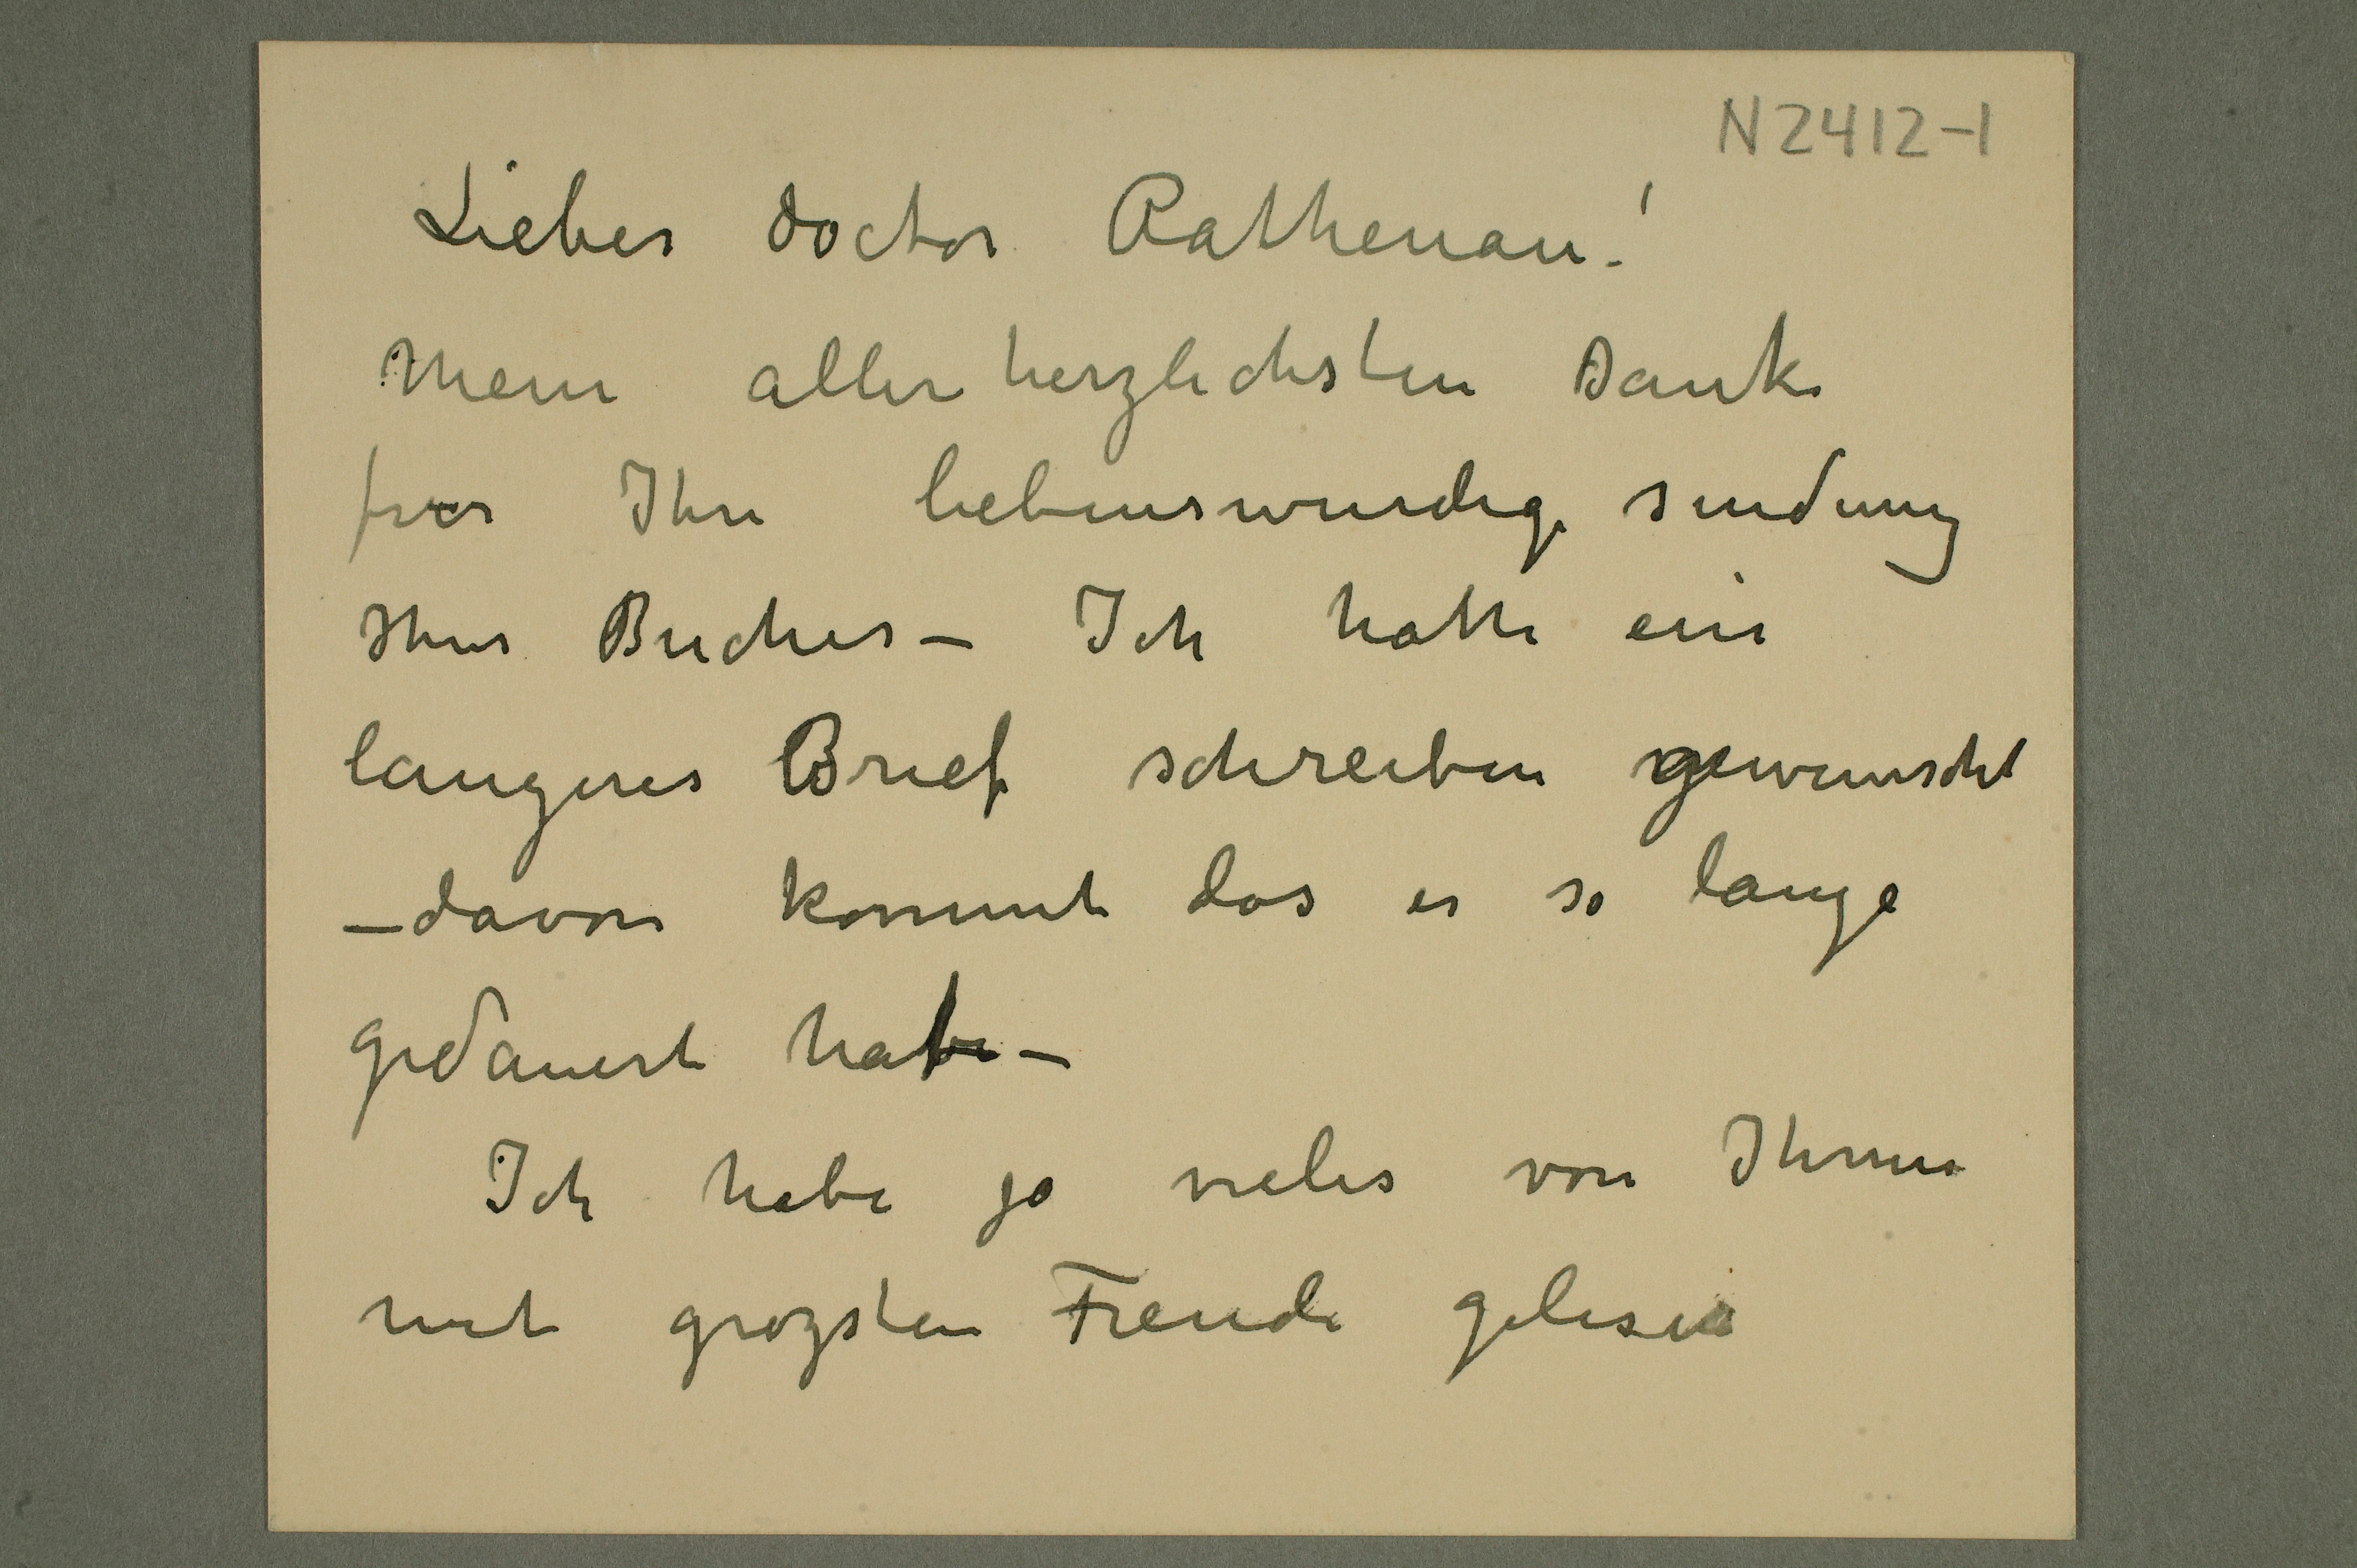 N 2412-1
Lieber doctor Rathenau!
Mein allerherzlichsten Dank
fur Ihre liebenswurdige sendung
Ihres Buches – Ich hatte ein
langeres Brief schreiben gewunscht
– davon kommt das es so lange
gedauert habe –
Ich habe ja vieles von Ihnen
mit grozsten Freude gelesen